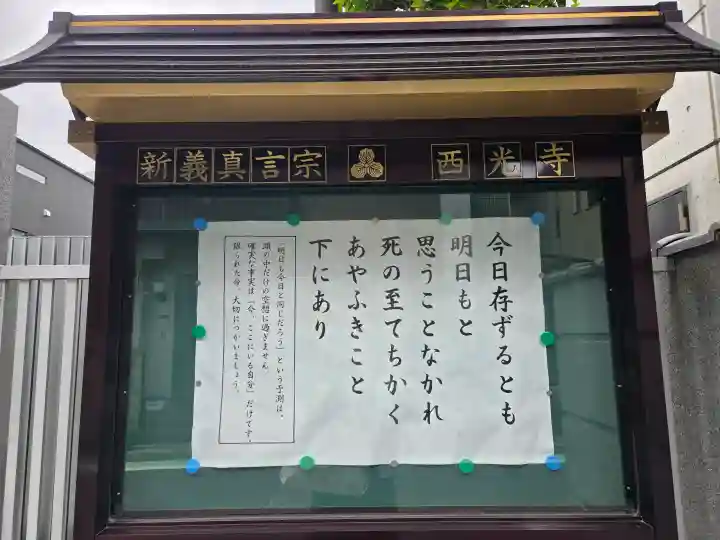 新義真言宗 西光寺
今日存ずるとも
明日もと
思うことなかれ
死の至てちかく
あやふきこと
下にあり
「明日も今日と同じだろう」という予測は、
頭の中だけの空想に過ぎません。
確実な事実は「今、ここにいる自分」だけです。
限られた命、大切につかいましょう。